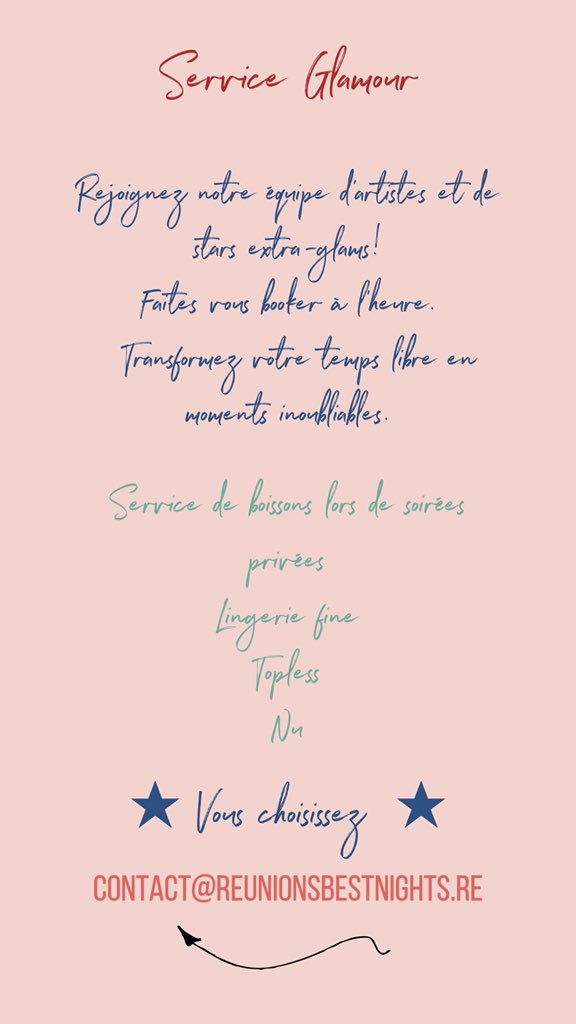 Service Glamour
Rejoignez notre équipe d'artistes et de
stars extra-glams!
Faites vous booker à l'heure.
Transformez votre temps libre en
moments inoubliables.
Service de boissons lors de soirées
privées
Lingerie fine
Topless
Nu
Vous choisissez
CONTACT@REUNIONSBESTNIGHTS.RE